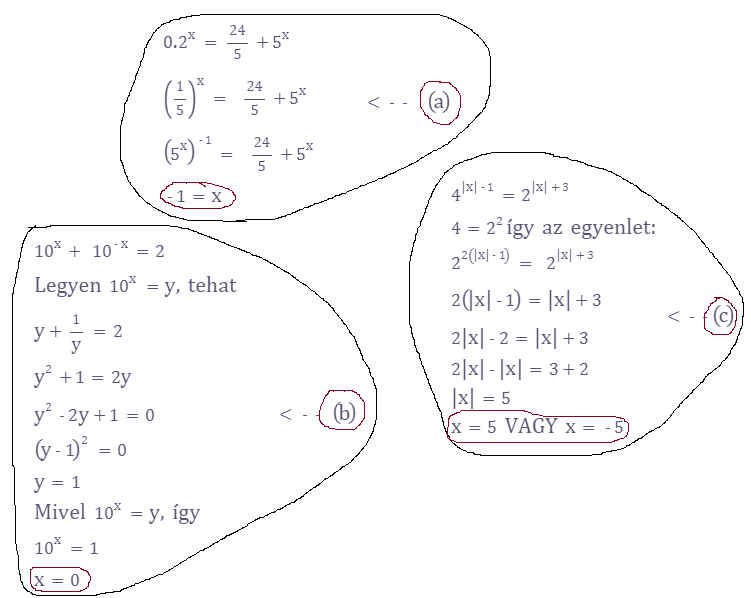 0.2^x = 24/5 + 5^x
(1/5)^x = 24/5 + 5^x <-- (a)
(5^x)^-1 = 24/5 + 5^x
-1 = x
10^x + 10^-x = 2
Legyen 10^x = y, tehat
y + 1/y = 2
y^2 + 1 = 2y
y^2 - 2y + 1 = 0 <-- (b)
(y - 1)^2 = 0
y = 1
Mivel 10^x = y, így
10^x = 1
x = 0
4^|x| - 1 = 2^|x| + 3
4 = 2^2 így az egyenlet:
2^2(|x| - 1) = 2^|x| + 3
2(|x| - 1) = |x| + 3 <-- (c)
2|x| - 2 = |x| + 3
2|x| - |x| = 3 + 2
|x| = 5
x = 5 VAGY x = -5